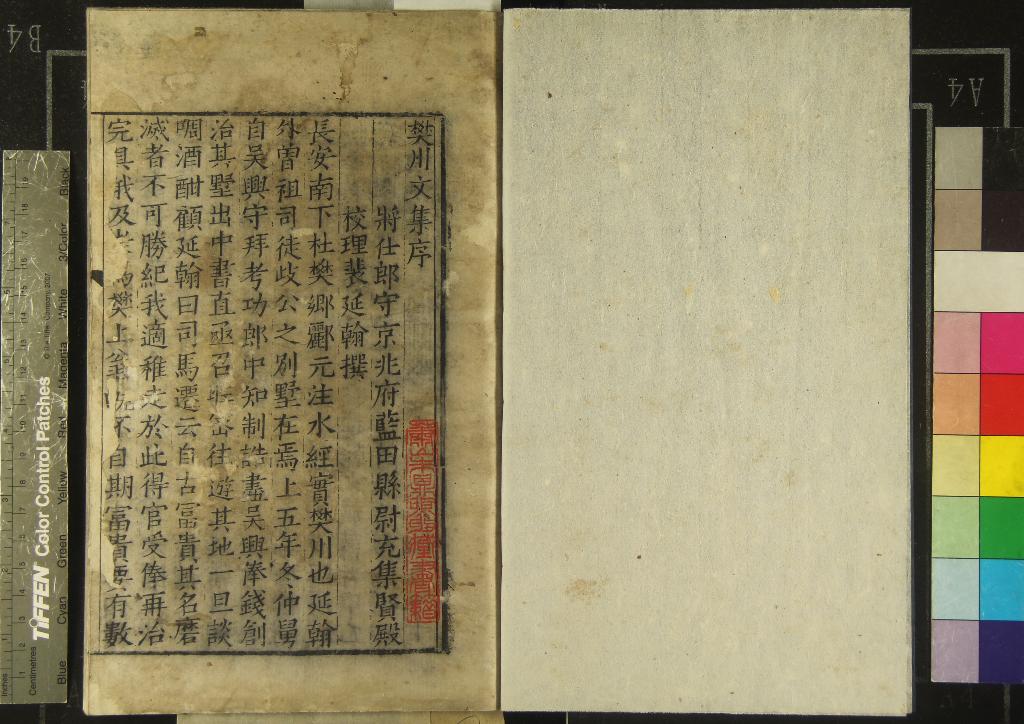 樊川文集序
將仕郎守京兆府藍田縣尉充集賢殿
校理裴延翰撰
長安南下杜樊鄉酈元注水經實樊川也延翰
外曾祖司徒岐公之別墅在焉上五年冬仲舅
自吳興守拜考功郎中知制誥盡吳興俸錢創
治其墅出中書直亟召昵密往遊其地一旦談
啁酒酣顧延翰曰司馬遷云自古富貴其名磨
滅者不可勝紀我適稚走於此得官受俸再治
完具我及為樊上翁既不自期富貴要有數
B4
A4
TIFFEN Color Control Patches
© The Tiffen Company, 2007
Inches
Centimetres
Blue
Cyan
Green
Yellow
Red
Magenta
White
3/Color
Black